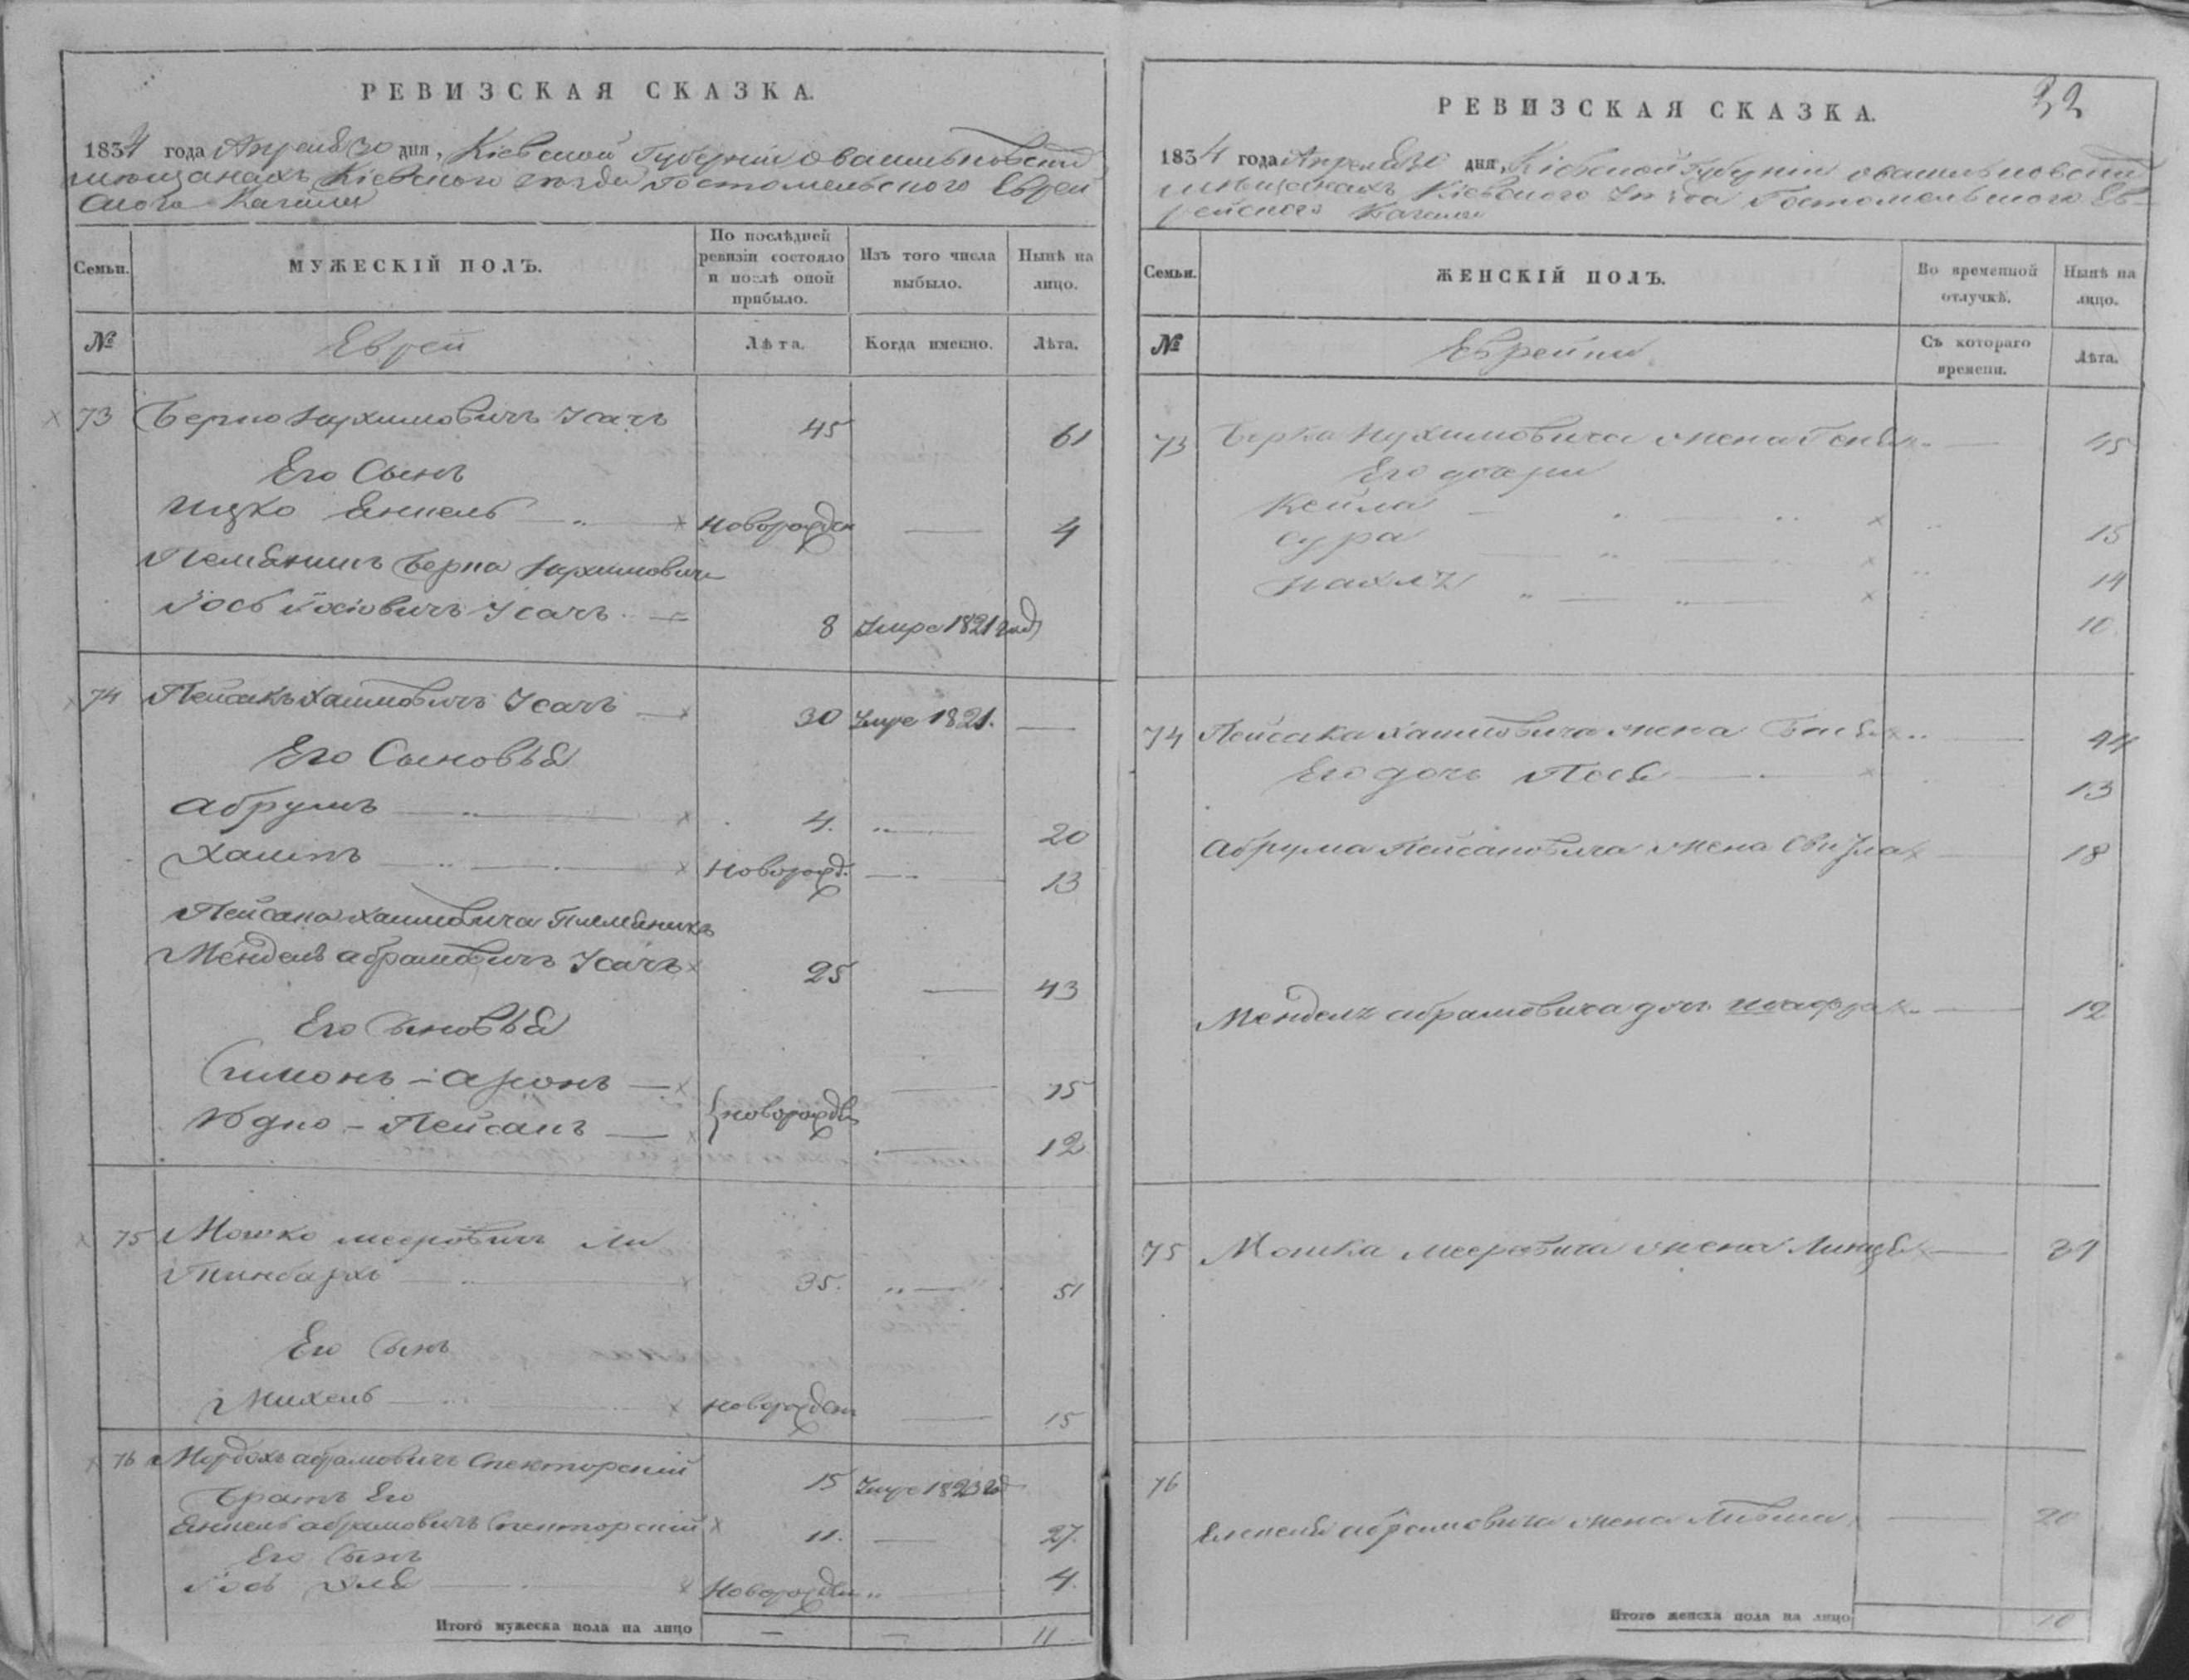 РЕВИЗСКАЯ СКАЗКА.
1834 года Апреля 30 дня, Кіевской Губерніи о васильковских
мещанахъ Кіевского уезда Гостомельского Еврей
ского Кагала
Семьи.
МУЖЕСКІЙ ПОЛЪ.
По послѣдней ревизіи состояло и послѣ оной прибыло.
Изъ того числа выбыло.
Нынѣ на лицо.
№
Евреи
Лѣта.
Когда именно.
Лѣта.
73 Берко Нухимовичъ Усачъ 45 61
Его Сынъ
Ицко Янкель новорожден 4
Племянник Берка Нухимовича
Іось Іосіовичъ Усачъ 8 Умре 1821 год
74 Пейсакъ Хаимовичъ Усачъ 30 Умре 1821.
Его Сыновья
Абрумъ 4. 20
Хаимъ новорожд. 13
Пейсаха Хаимовича Племянникъ
Мендель Абрамовичъ Усачъ 25 43
Его Сыновья
Симонъ - Аронъ 15
Юдко - Пейсахъ новорожден 12
75 Мошко Мееровичъ Ли
тинбархъ 35. 51
Его Сынъ
Михель новорожден 15
76 Мордохъ Абрамовичъ Спекторскій 15 Умре 1823 год
Братъ Его
Янкель Абрамовичъ Спекторскій 11. 27.
Его Сынъ
Іось новорожден 4.
Итого мужеска пола на лицо 11
32
РЕВИЗСКАЯ СКАЗКА.
1834 года Апреля 30 дня, Кіевской Губерніи о васильковских
мѣщанахъ Кіевского Уѣзда Гостомельского Ев-
рейского Кагала
Семьи.
ЖЕНСКІЙ ПОЛЪ.
Во временной отлучкѣ.
Нынѣ на лицо.
№
Еврейки
Съ котораго времени.
Лѣта.
73 Берка Нухимовича жена Геня 45
Его дочери
Кейла 15
Сура 14
10
74 Пейсаха Хаимовича жена Бася 44
Его дочь Песя 13
Абрума Пейсаховича жена 18
Менделя Абрамовича дочь 12
75 Мошка Мееровича жена 31
76
Янкеля Абрамовича жена Либа 20
Итого женска пола на лицо 10